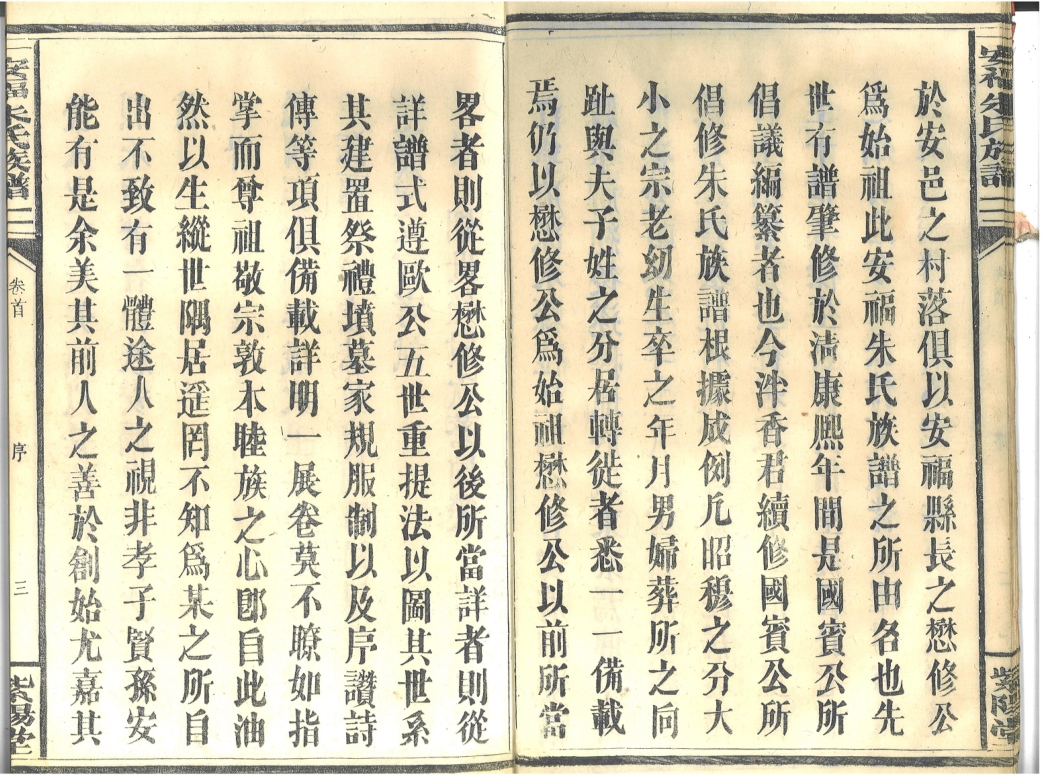 安福朱氏族譜
紫陽堂
於安邑之村落俱以安福縣長之懋修公
爲始祖此安福朱氏族譜之所由名也先
世有譜肇修於清康熙年間是國賓公所
倡議編纂者也今泮香君續修國賓公所
倡修朱氏族譜根據成例凡昭穆之分大
小之宗老幼生卒之年月男婦葬所之向
趾與夫子姓之分居轉徙者悉一一備載
焉仍以懋修公爲始祖懋修公以前所當
畧者則從畧懋修公以後所當詳者則從
詳譜式遵歐公五世重提法以圖其世系
其建置祭禮墳墓家規服制以及序讚詩
傳等項俱備載詳明一展卷莫不瞭如指
掌而尊祖敬宗敦本睦族之心卽自此油
然以生縱世隅居遥罔不知爲某之所自
出不致有一體途人之視非孝子賢孫安
能有是余美其前人之善於創始尤嘉其
安福朱氏族譜
卷首
序
三
紫陽堂